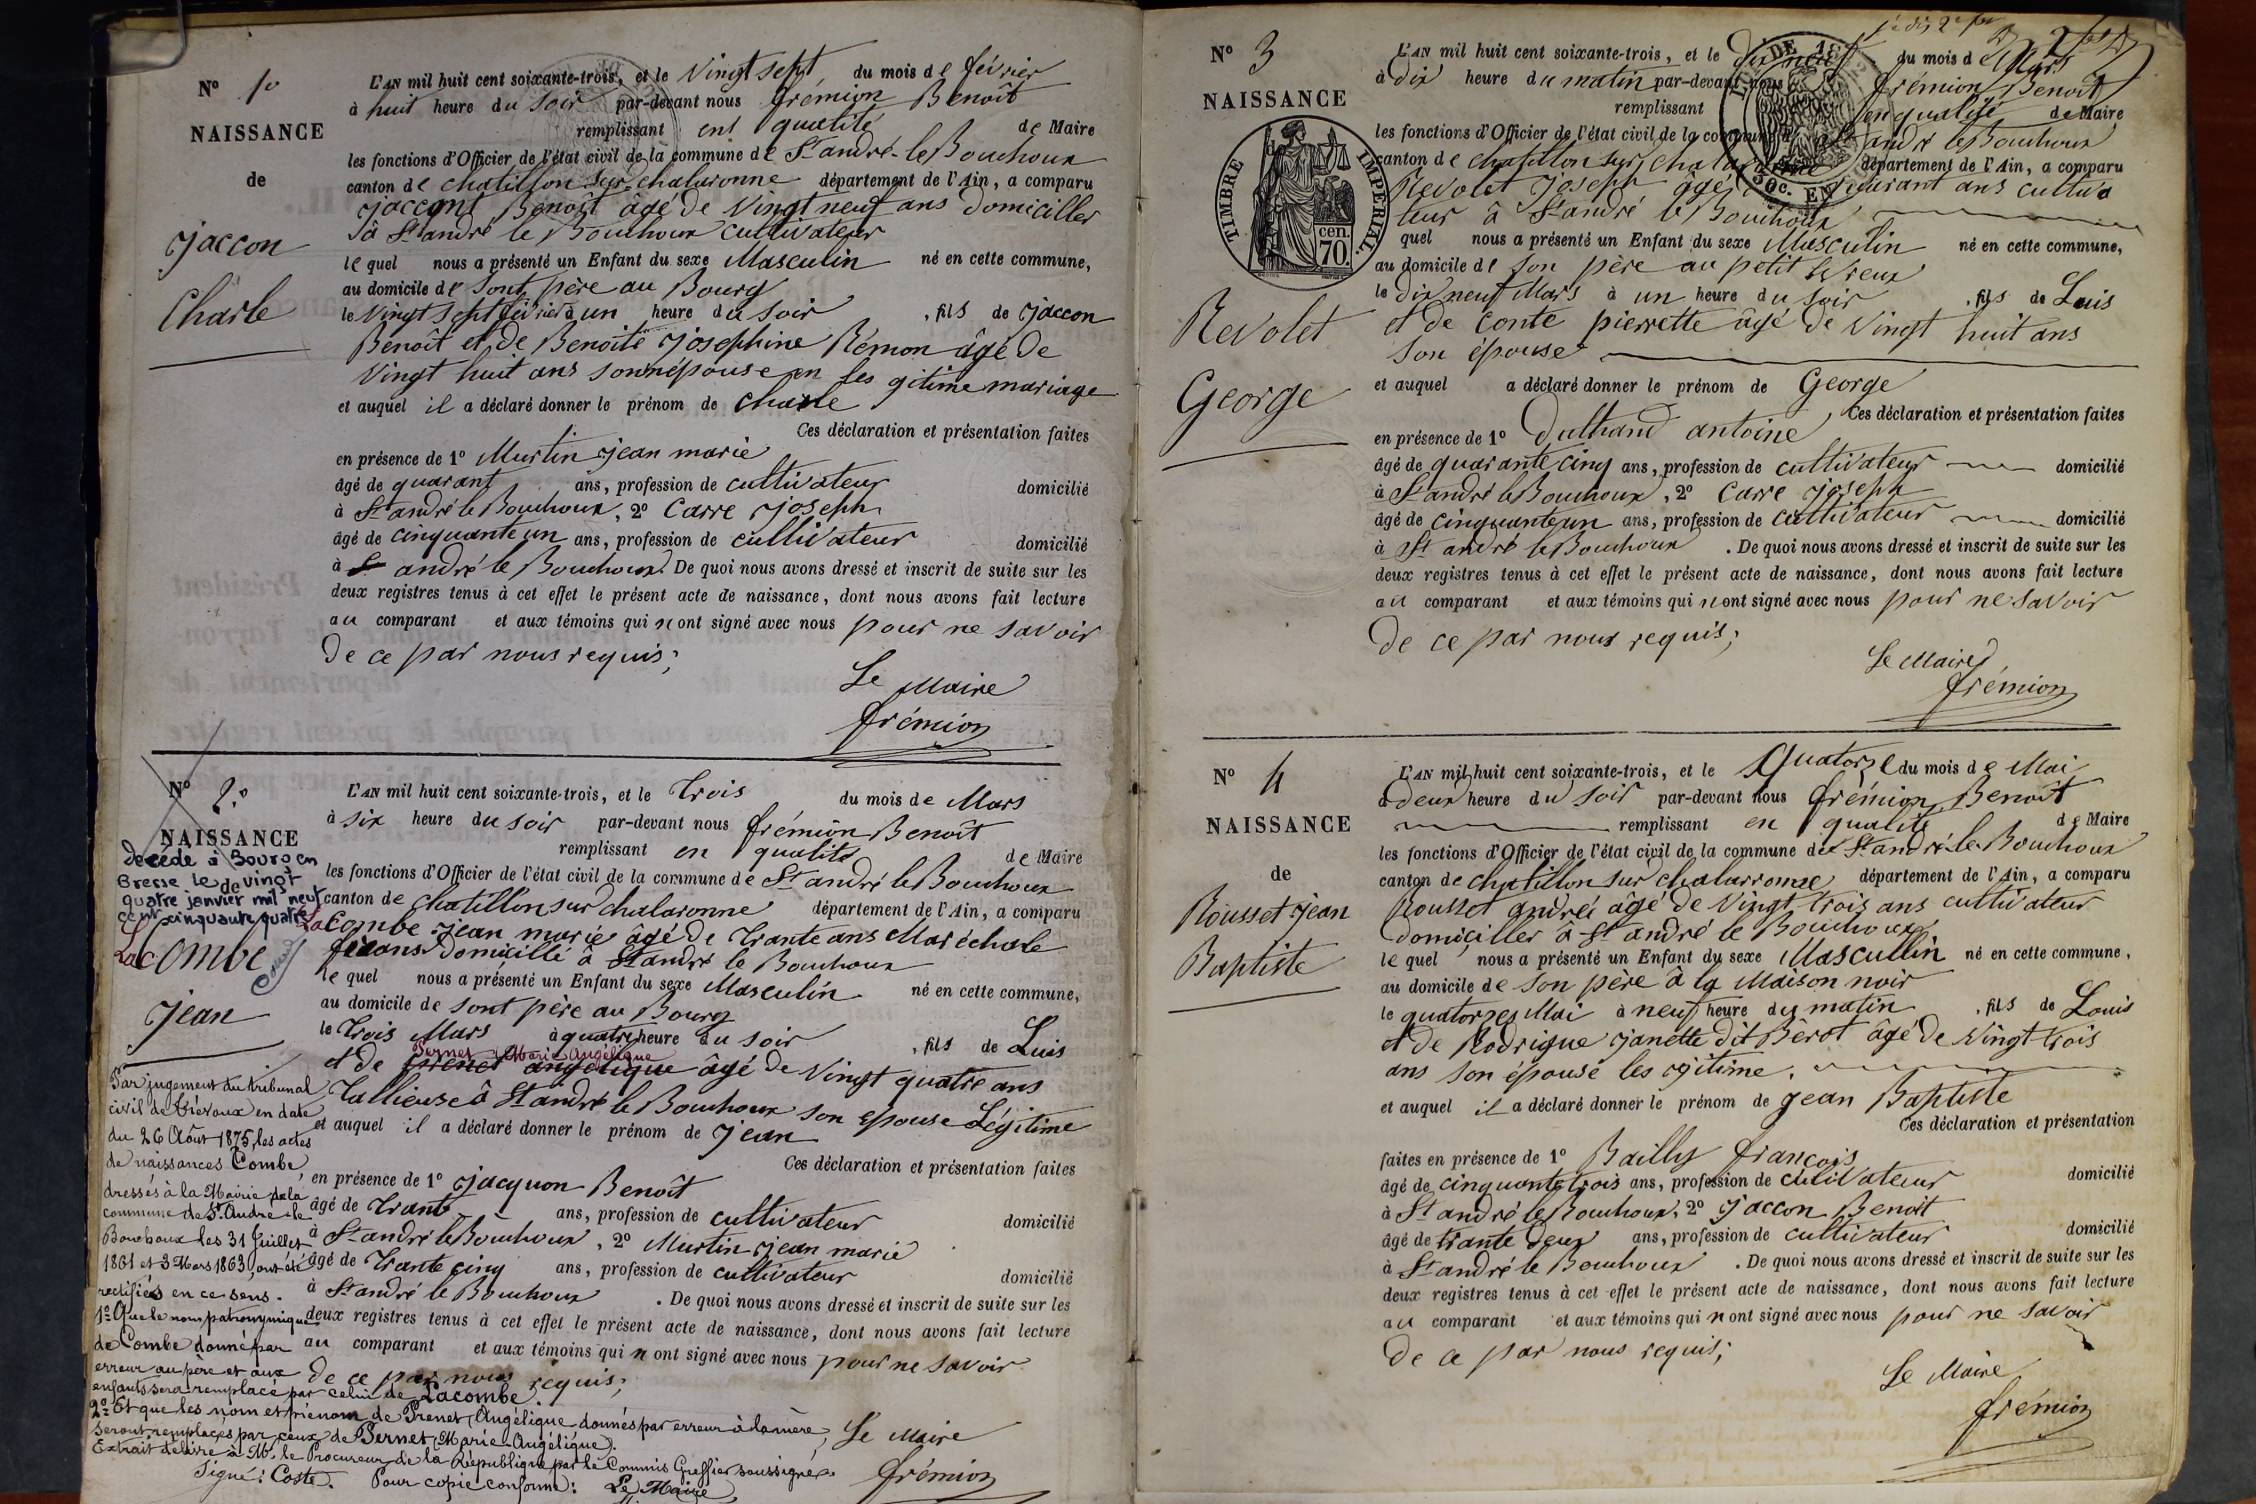 N° 1°
NAISSANCE
de
Jaccon
Charle
L'AN mil huit cent soixante-trois, et le Vingt sept du mois de février
à huit heure du soir par-devant nous frémion Benoît
remplissant en qualité de Maire
les fonctions d'Officier de l'état civil de la commune de St andré-le Bouchoux
canton de chatillon sur chalaronne département de l'Ain, a comparu
Jaccont Benoît âgé de Vingt neuf ans domiciller
à St andré le Bouchoux cultivateur
le quel nous a présenté un Enfant du sexe Masculin né en cette commune,
au domicile de sont père au Bourg
le Vingt sept février à un heure du soir , fils de Jaccon
Benoît et de Benoîte Josephine Rémon âgé de
Vingt huit ans son népouse en les gitime mariage
et auquel il a déclaré donner le prénom de charle
Ces déclaration et présentation faites
en présence de 1° Murtin Jean marie
âgé de quarant ans, profession de cultivateur domicilié
à St andré le Bouchoux, 2° Carre Joseph
âgé de cinquante un ans, profession de cultivateur domicilié
à St andré le Bouchoux. De quoi nous avons dressé et inscrit de suite sur les
deux registres tenus à cet effet le présent acte de naissance, dont nous avons fait lecture
au comparant et aux témoins qui n ont signé avec nous pour ne savoir
de ce par nous requis;
Le Maire
frémion
N° 2°
NAISSANCE
décédé à Bourg en
Bresse le vingt
quatre janvier mil neuf
cent cinquante quatre
Lacombe
Jean
L'AN mil huit cent soixante-trois, et le Trois du mois de Mars
à six heure du soir par-devant nous frémion Benoît
remplissant en qualité de Maire
les fonctions d'Officier de l'état civil de la commune de St andré le Bouchoux
canton de chatillon sur chalaronne département de l'Ain, a comparu
Lacombe Jean marie âgé de trante ans Maréchale
domicillé à St andré le Bouchoux
le quel nous a présenté un Enfant du sexe Masculin né en cette commune,
au domicile de sont père au Bourg
le Trois Mars à quatre heure du soir , fils de Luis
Pernet Marie Angélique
et de prenet angelique âgé de Vingt quatre ans
Tallieuse à St andré le Bouchoux son epouse Légitime
et auquel il a déclaré donner le prénom de Jean
Ces déclaration et présentation faites
en présence de 1° Jacquon Benoît
âgé de trante ans, profession de cultivateur domicilié
à St andré le Bouchoux, 2° Murtin Jean marie
âgé de trante cinq ans, profession de cultivateur domicilié
à St andré le Bouchoux . De quoi nous avons dressé et inscrit de suite sur les
deux registres tenus à cet effet le présent acte de naissance, dont nous avons fait lecture
au comparant et aux témoins qui n ont signé avec nous pour ne savoir
de ce par nous requis;
Le Maire
frémion
Par jugement du tribunal
civil de Trévoux en date
du 26 Août 1875, les actes
de naissances Combe,
dressés à la Mairie de la
commune de St André-le
Bouchoux les 31 Juillet
1861 et 3 Mars 1863, ont été
rectifiés en ce sens.
1° Que le nom patronymique
de Combe donné par
erreur au père et aux
enfants sera remplacé par celui de Lacombe.
2° Et que les nom et prénom de Prenet, Angélique donnés par erreur à la mère,
seront remplacés par ceux de Pernet (Marie-Angélique).
Extrait délivré à M. le Procureur de la République par le Commis Greffier soussigné.
Signé: Coste. Pour copie conforme: Le Maire
N° 3
NAISSANCE
TIMBRE IMPERIAL
cen. 70.
Revolet
George
L'AN mil huit cent soixante-trois, et le Dix neuf du mois de Mars
à dix heure du matin par-devant nous frémion Benoît
remplissant en qualité de Maire
les fonctions d'Officier de l'état civil de la commune de St andré le Bouchoux
canton de chatillon sur chalaronne département de l'Ain, a comparu
Revolet Joseph âgé quarant ans cultiva
teur à St andré le Bouchoux
quel nous a présenté un Enfant du sexe Masculin né en cette commune,
au domicile de son père au petit
le dix neuf Mars à un heure du soir , fils de Luis
et de Conte pierrette âgé de Vingt huit ans
son épouse
et auquel a déclaré donner le prénom de George
Ces déclaration et présentation faites
en présence de 1° antoine
âgé de quarante cinq ans, profession de cultivateur domicilié
à St andré le Bouchoux, 2° Carre Joseph
âgé de cinquante un ans, profession de cultivateur domicilié
à St andré le Bouchoux . De quoi nous avons dressé et inscrit de suite sur les
deux registres tenus à cet effet le présent acte de naissance, dont nous avons fait lecture
au comparant et aux témoins qui n ont signé avec nous pour ne savoir
de ce par nous requis;
Le Maire
frémion
N° 4
NAISSANCE
de
Rousset Jean
Baptiste
L'AN mil huit cent soixante-trois, et le Quatorze du mois de Mai
à deux heure du soir par-devant nous frémion Benoît
remplissant en qualité de Maire
les fonctions d'Officier de l'état civil de la commune de St andré le Bouchoux
canton de chatillon sur chalarronne département de l'Ain, a comparu
Rousset andréi âgé de Vingt trois ans cultivateur
domiciller à St andré le Bouchoux
le quel nous a présenté un Enfant du sexe Mascullin né en cette commune,
au domicile de son père à la Maison noir
le quatorzes Mai à neuf heure du matin , fils de Louis
et de Rodrigue Janette dit Bérot âgé de Vingt trois
ans son épouse les gitime.
et auquel il a déclaré donner le prénom de Jean Baptiste
Ces déclaration et présentation
faites en présence de 1° Bailly françois
âgé de cinquante trois ans, profession de cultivateur domicilié
à St andré le Bouchoux, 2° Jaccon Benoit
âgé de trante deux ans, profession de cultivateur domicilié
à St andré le Bouchoux . De quoi nous avons dressé et inscrit de suite sur les
deux registres tenus à cet effet le présent acte de naissance, dont nous avons fait lecture
au comparant et aux témoins qui n ont signé avec nous pour ne savoir
de ce par nous requis;
Le Maire
frémion